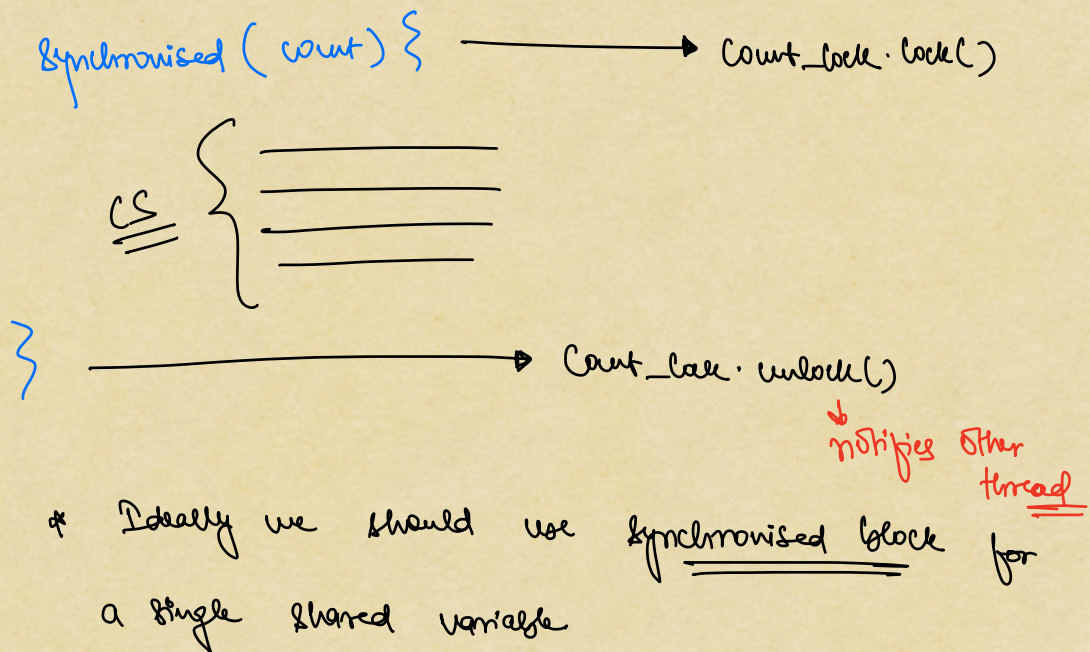 Synchronised ( count ) {
Count_lock. lock()
CS
}
Count_lock. unlock()
notifies other
thread
* Ideally we should use synchronised block for
a single shared variable